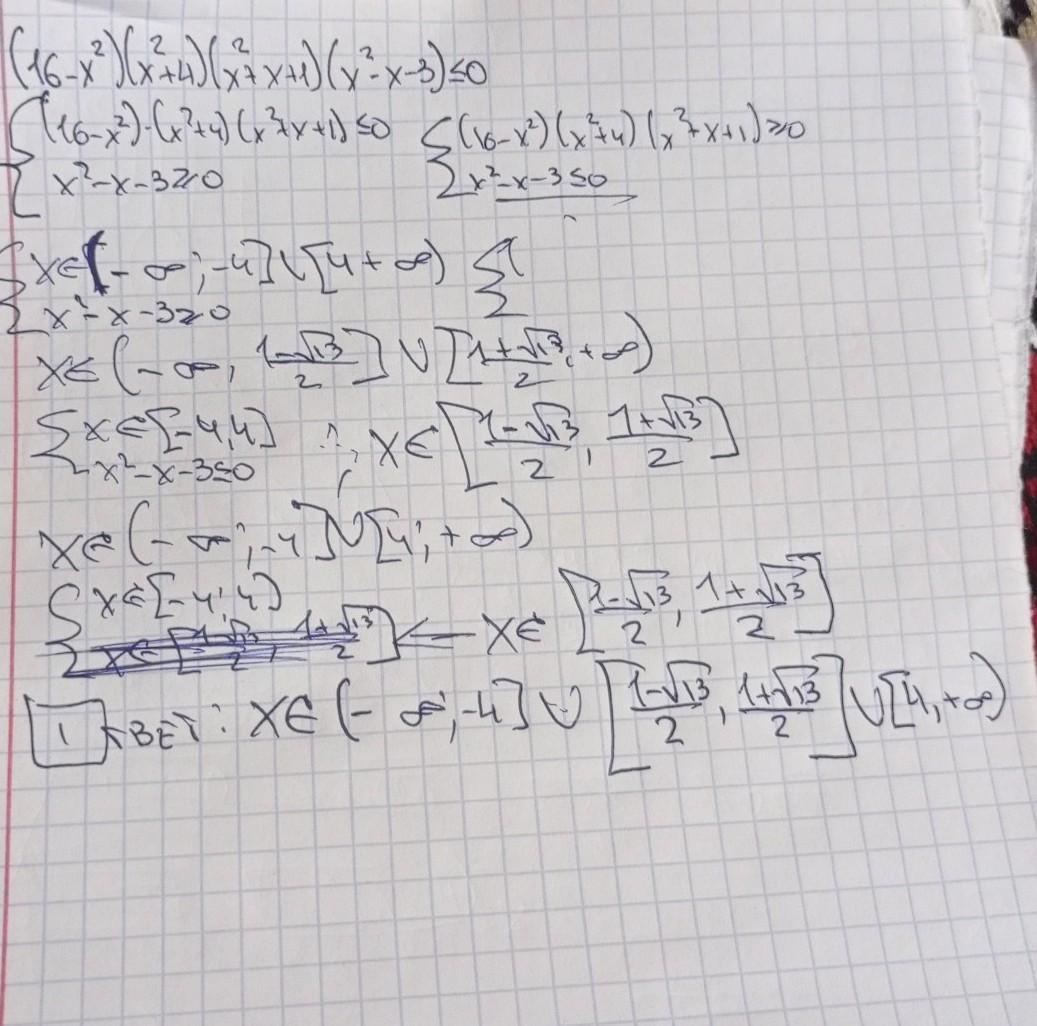 (16-x²)(x²+4)(x²+x+1)(x²-x-3)≤0
{(16-x²)·(x²+4)(x²+x+1)≤0 {(16-x²)(x²+4)(x²+x+1)≥0
x²-x-3≥0 x²-x-3≤0
{x∈(-∞;-4]∪[4+∞) {
x²-x-3≥0
x∈(-∞, (1-√13)/2]∪[(1+√13)/2,+∞)
{x∈[-4,4] ∴, x∈[(1-√13)/2, (1+√13)/2]
x²-x-3≤0
x∈(-∞;-4]∪[4;+∞)
{x∈[-4;4)
x∈[(1-√13)/2, (1+√13)/2] ← x∈[(1-√13)/2, (1+√13)/2]
1 твет: x∈(-∞;-4]∪[(1-√13)/2, (1+√13)/2]∪[4,+∞)